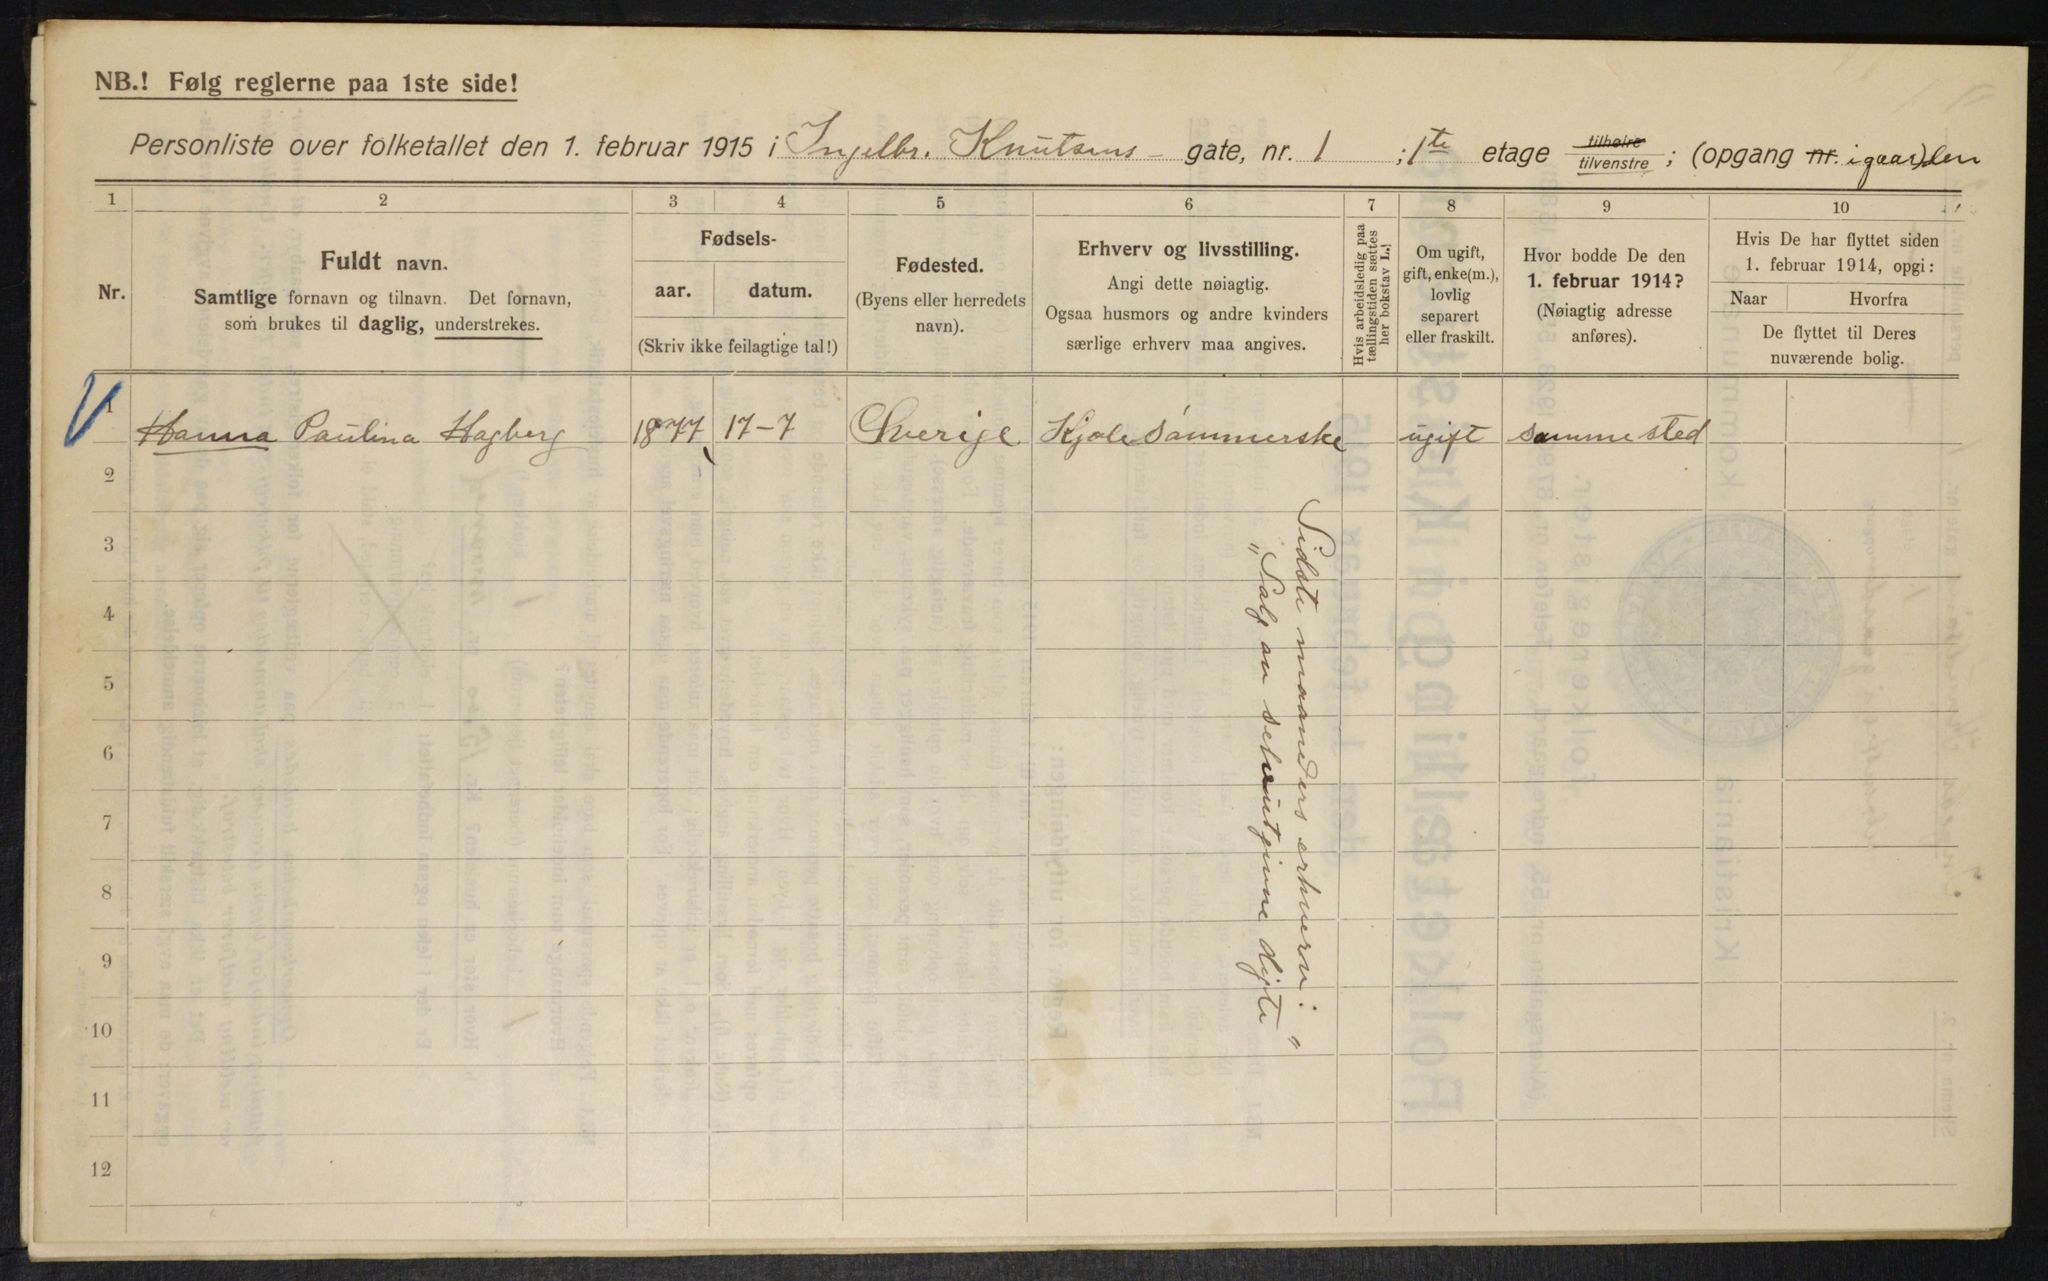 NB.! Følg reglerne paa 1ste side!
Personliste over folketallet den 1. februar 1915 i Ingelbr. Knutsens gate, nr. 1 ; 1te etage tilhøire tilvenstre ; (opgang nr. i gaarden)
1 2 3 4 5 6 7 8 9 10
Nr.
Fuldt navn.
Samtlige fornavn og tilnavn. Det fornavn,
som brukes til daglig, understrekes.
Fødsels-
aar. datum.
(Skriv ikke feilagtige tal!)
Fødested.
(Byens eller herredets
navn).
Erhverv og livsstilling.
Angi dette nøiagtig.
Ogsaa husmors og andre kvinders
særlige erhverv maa angives.
Hvis arbeidsledig paa
tællingstiden sættes
her bokstav L.!
Om ugift,
gift, enke(m.),
lovlig
separert
eller fraskilt.
Hvor bodde De den
1. februar 1914?
(Nøiagtig adresse
anføres).
Hvis De har flyttet siden
1. februar 1914, opgi:
Naar Hvorfra
De flyttet til Deres
nuværende bolig.
1 Hanna Paulina Hagberg 1877 17-7 Sverige Kjolesømmerske ugift samme sted
2
3
4
5
6
7
8
9
10
11
12
Sidste maaneders erhverv:
"Salg av selvutgivne digte"